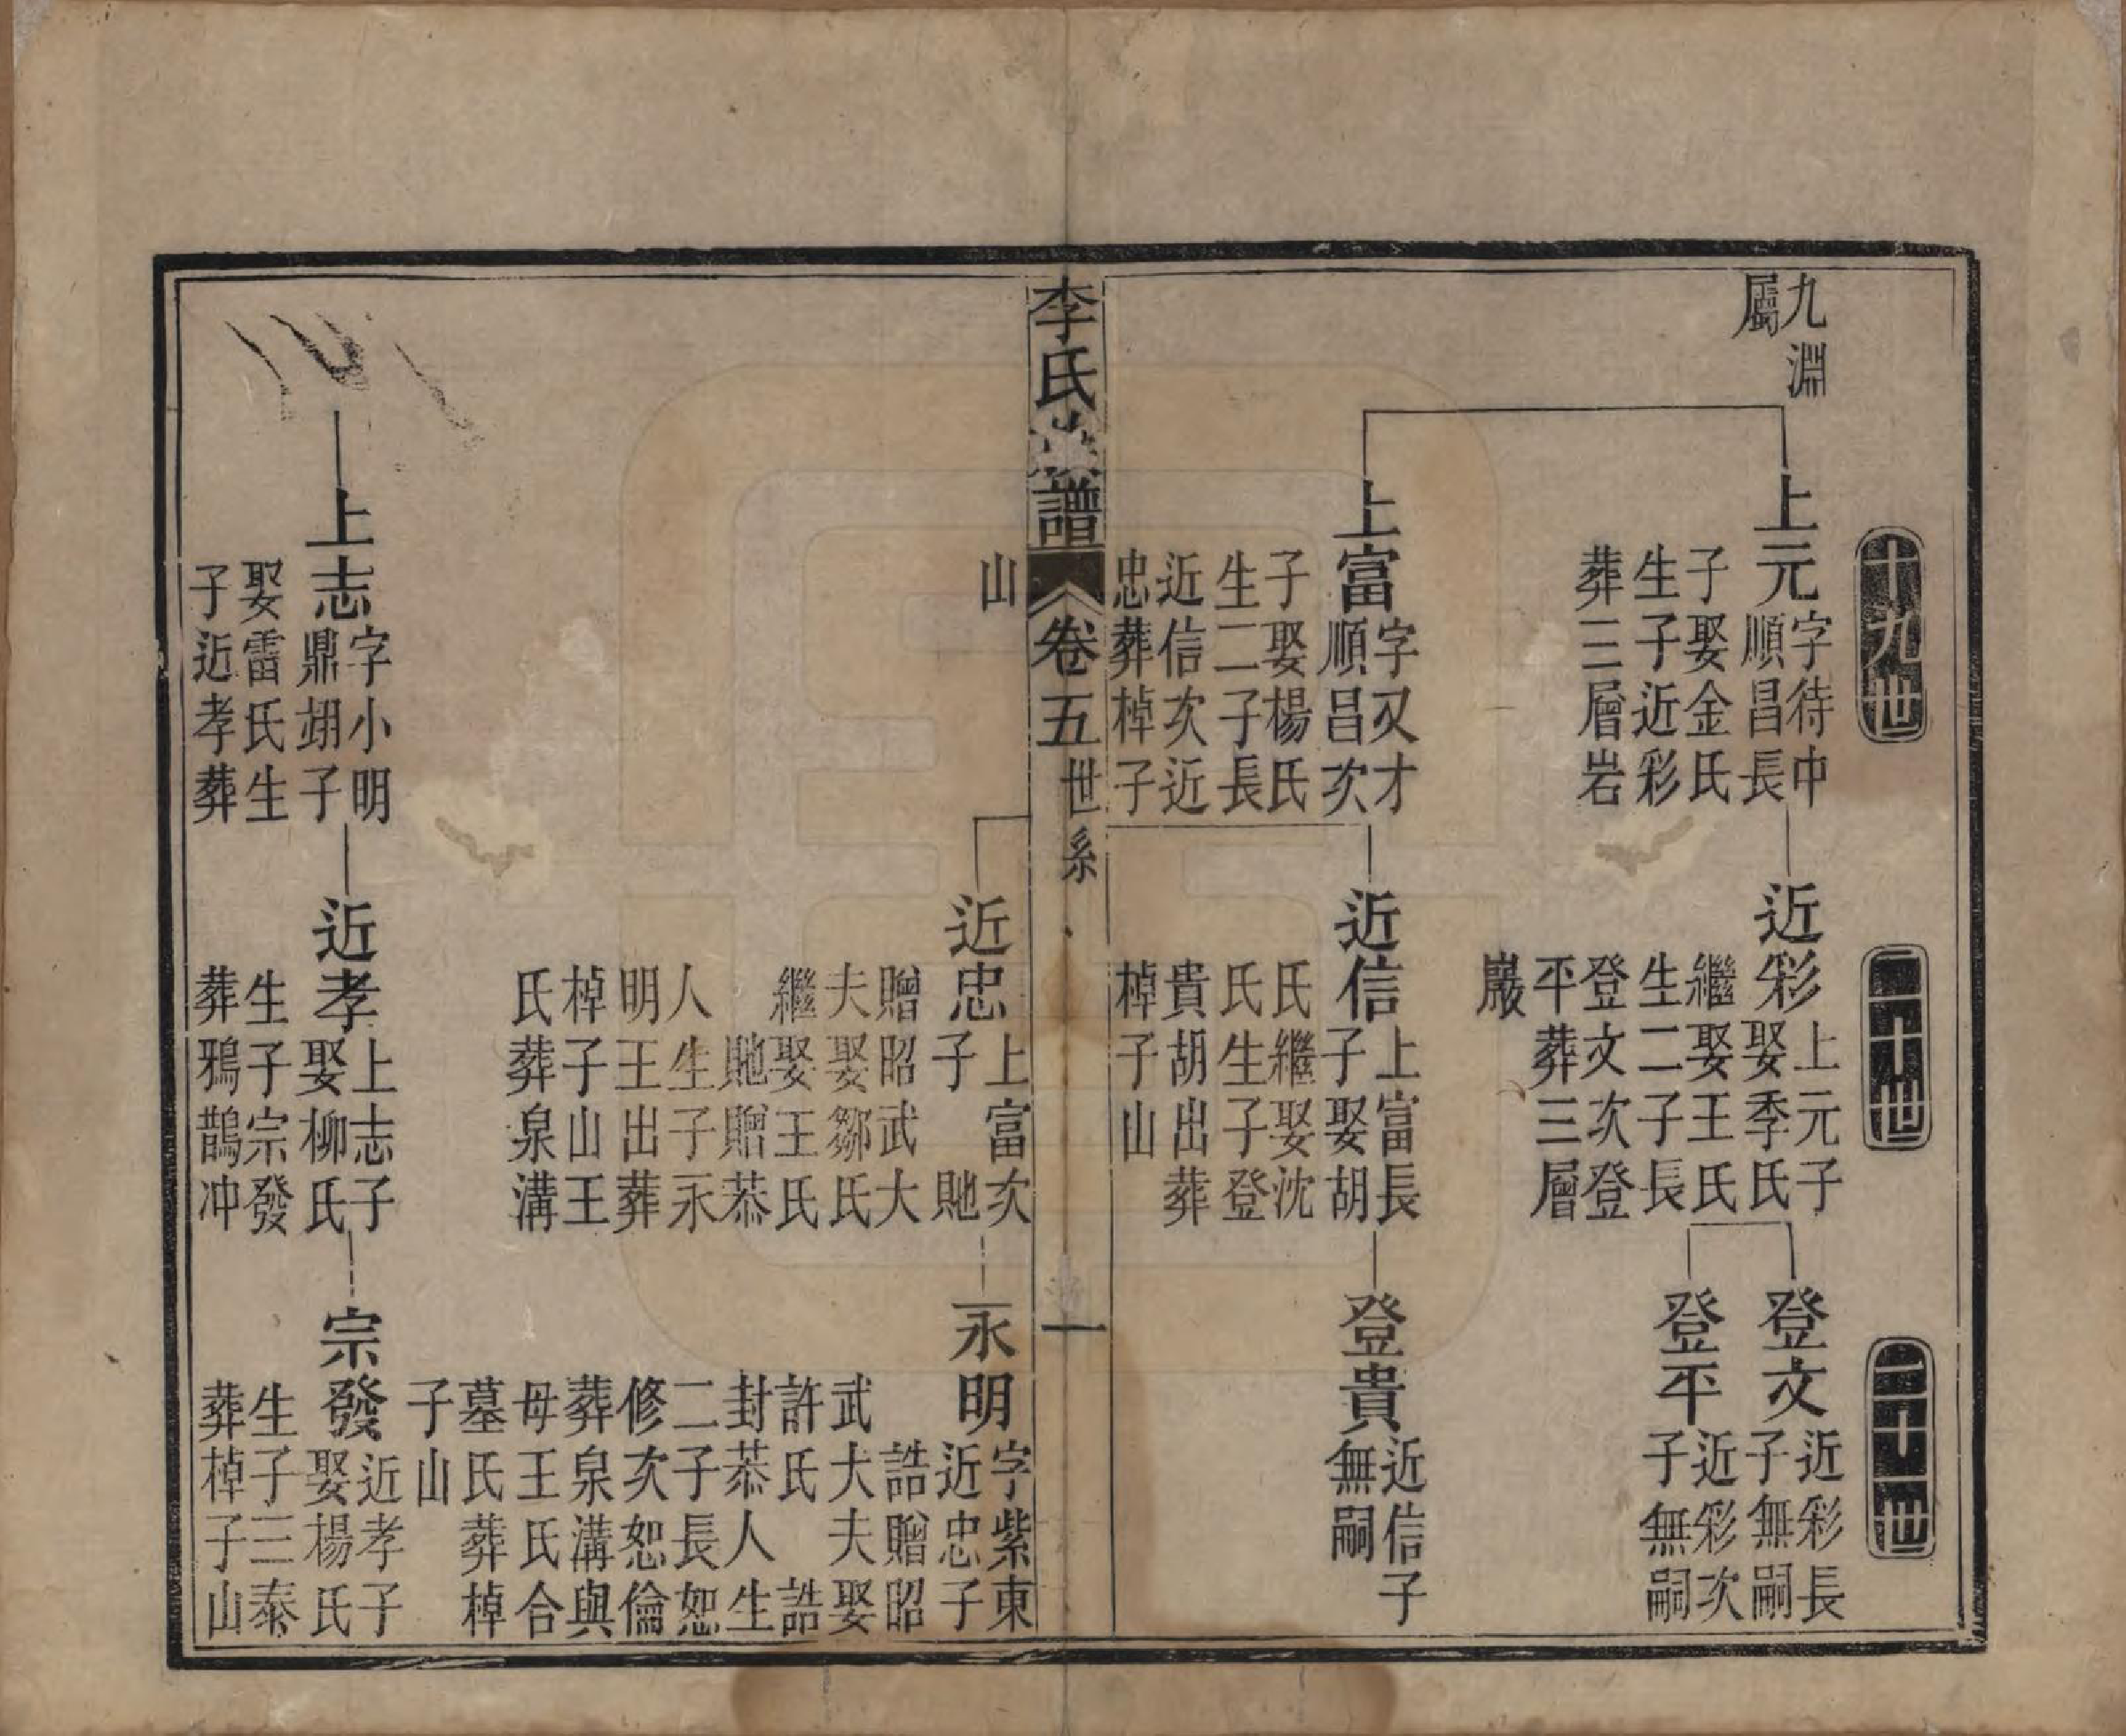 九淵
屬
十九世
上元
字待中
順昌長
子娶金氏
生子近彩
葬三層岩
上富
字又才
順昌次
子娶楊氏
生二子長
近信次近
忠葬棹子
山
二十世
近彩
上元子
娶季氏
繼娶王氏
生二子長
登文次登
平葬三層
巖
近信
上富長
子娶胡
氏繼娶沈
氏生子登
貴胡出葬
棹子山
二十一世
登文
近彩長
子無嗣
登平
近彩次
子無嗣
登貴
近信子
無嗣
李氏
譜
卷五
世系
一
近忠
上富次
子 貤
贈昭武大
夫娶鄒氏
繼娶王氏
貤贈恭
人生子永
明王出葬
棹子山王
氏葬泉溝
永明
字紫東
近忠子
誥贈昭
武大夫娶
許氏 誥
封恭人生
二子長恕
修次恕倫
葬泉溝與
母王氏合
墓氏葬棹
子山
上志
字小明
鼎翊子
娶雷氏生
子近孝葬
近孝
上志子
娶柳氏
生子宗發
葬鴉鵲冲
宗發
近孝子
娶楊氏
生子三泰
葬棹子山